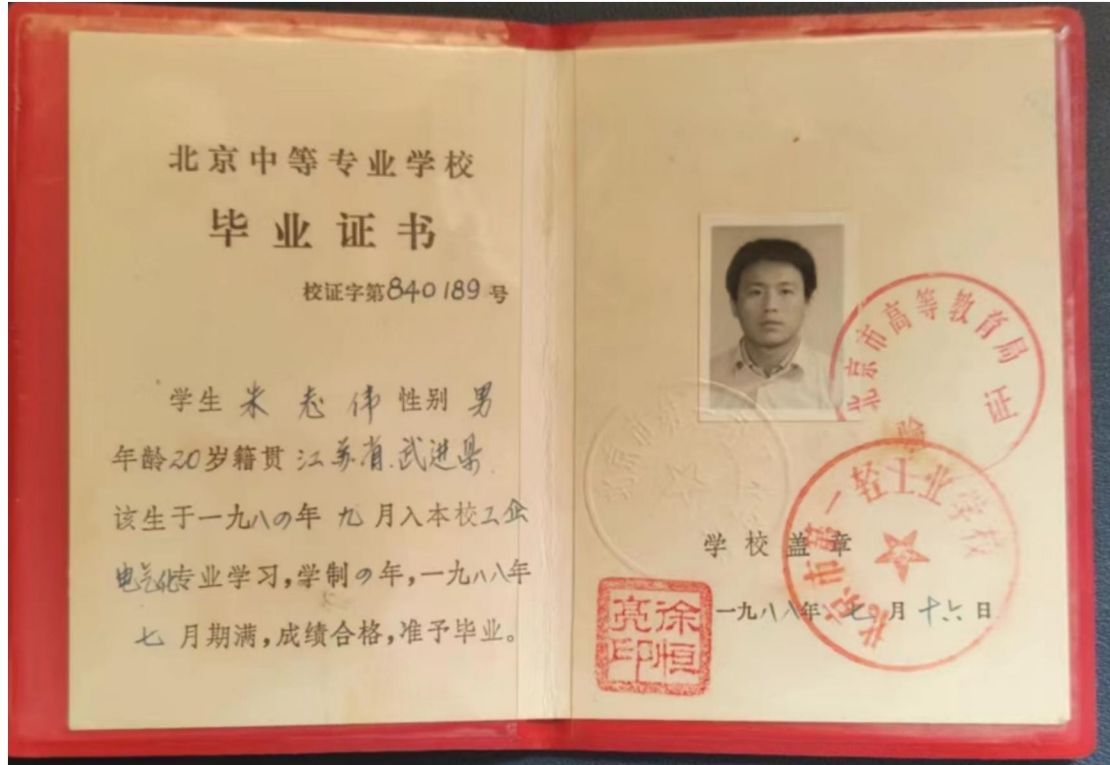 北京中等专业学校
毕业证书
校证字第840189号
学生 朱志伟 性别 男
年龄20岁籍贯 江苏省武进县
该生于一九八〇年 九 月入本校工企
电气化专业学习,学制〇年,一九八八年
七 月期满,成绩合格,准予毕业。
北京市高等教育局
验证
北京市第一轻工业学校
学校盖章
一九八八年 七 月 十六 日
徐恒
亮印